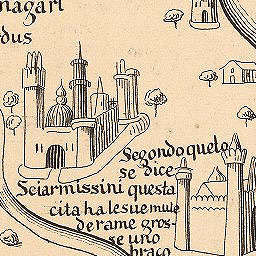 nagari
dus
Segondo queto
se dice
Sciarmissini questa
cita ha le sue mule
de rame gros-
se uno
braço